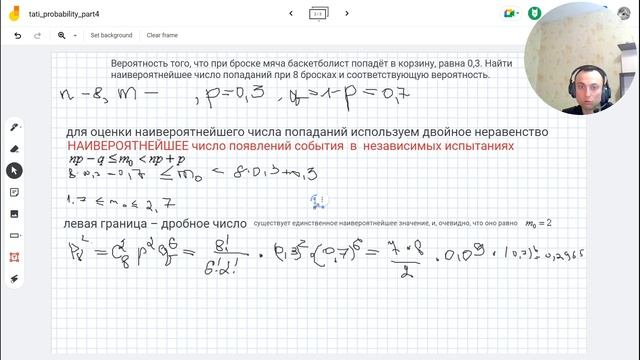 tati_probability_part4
3 / 3
Set background Clear frame
Вероятность того, что при броске мяча баскетболист попадёт в корзину, равна 0,3. Найти
наивероятнейшее число попаданий при 8 бросках и соответствующую вероятность.
n - 8, m — , p = 0,3, q = 1 - p = 0,7
для оценки наивероятнейшего числа попаданий используем двойное неравенство
НАИВЕРОЯТНЕЙШЕЕ число появлений события в независимых испытаниях
np − q ≤ m₀ < np + p
8·0,3 - 0,7 ≤ m₀ < 8·0,3+0,3
1,7 ≤ m₀ ≤ 2,7
левая граница – дробное число существует единственное наивероятнейшее значение, и, очевидно, что оно равно m₀ = 2
P₈² = C₈² p² q⁶ = 8!/6!·2! · (0,3)² · (0,7)⁶ = 7·8/2 · 0,09 · (0,7)⁶ = 0,2965